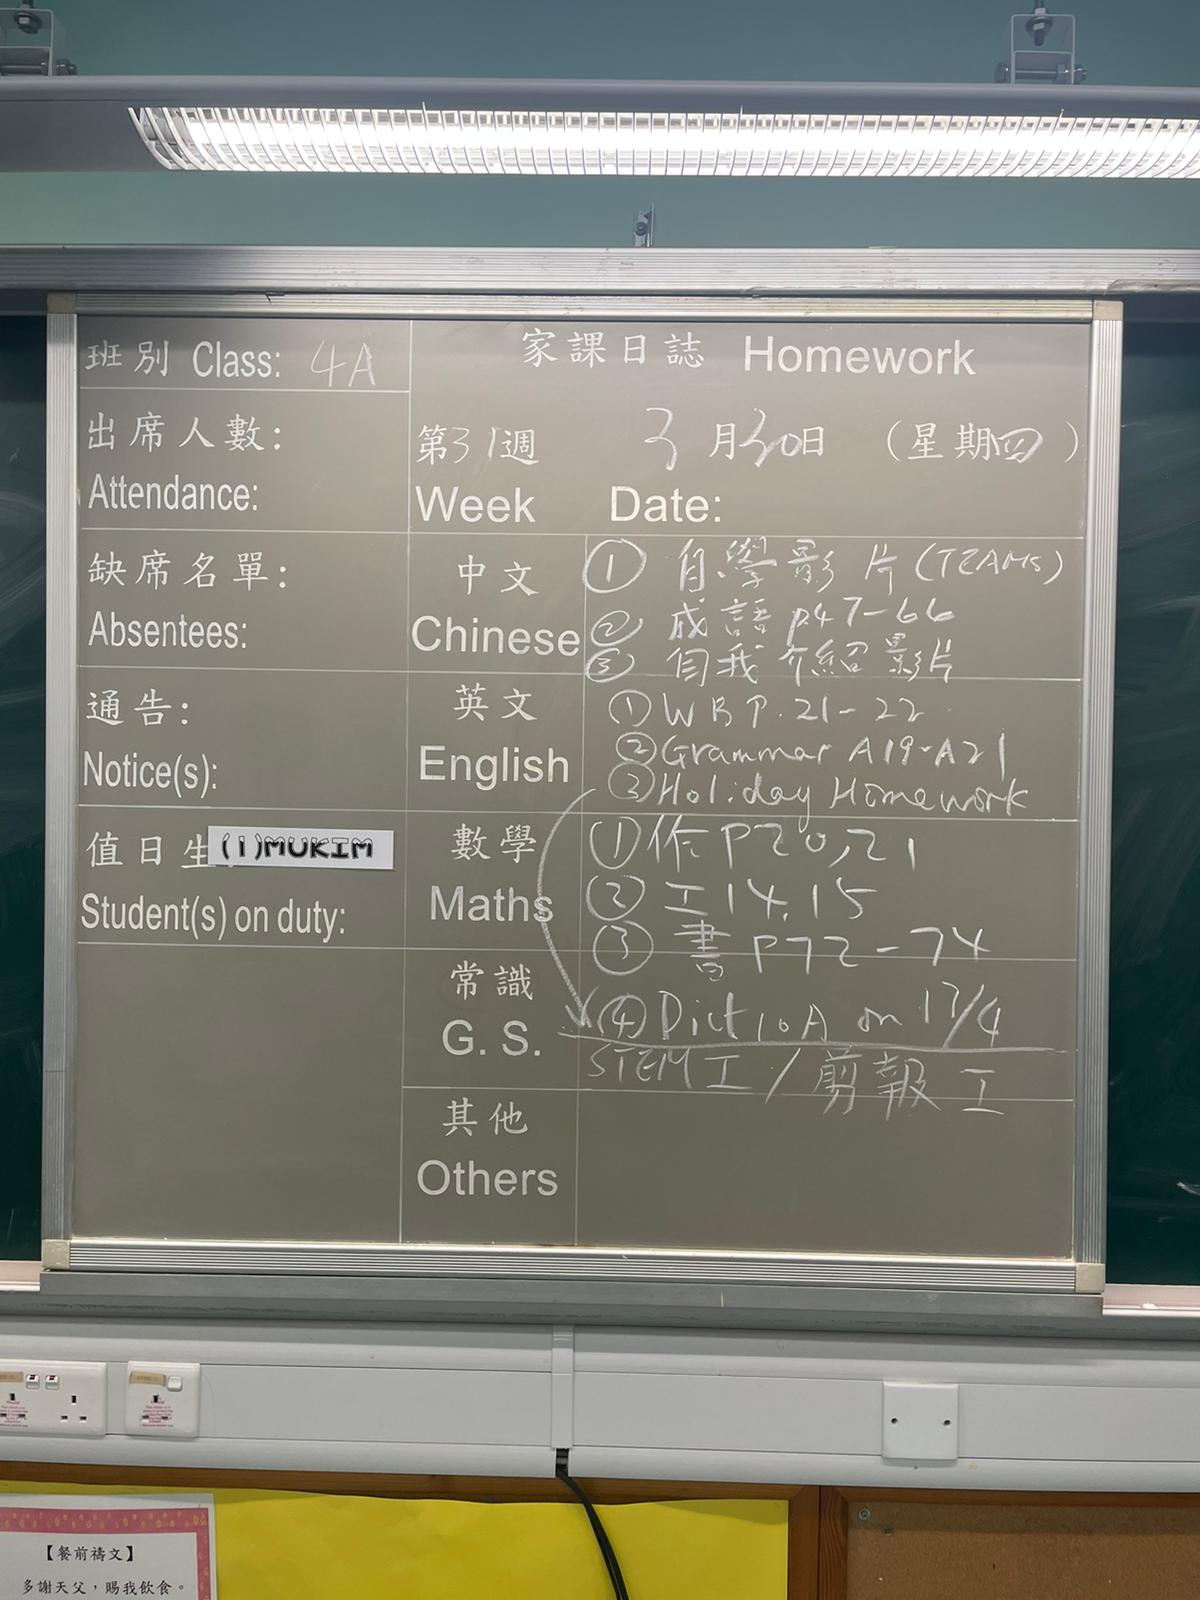 班別 Class: 4A
家課日誌 Homework
出席人數:
Attendance:
第31週 3月30日 (星期四)
Week Date:
缺席名單:
Absentees:
中文
Chinese
① 自學影片(TEAMS)
② 成語 P47-66
③ 自我介紹影片
通告:
Notice(s):
英文
English
① WB P.21-22
② Grammar A19-A21
③ Holiday Homework
值日生
(1)MUKIM
Student(s) on duty:
數學
Maths
① 作 P20,21
② 工 14,15
③ 書 P72-74
常識
G. S.
④ Dict 10A on 17/4
STEM工/剪報工
其他
Others
【餐前禱文】
多謝天父，賜我飲食。